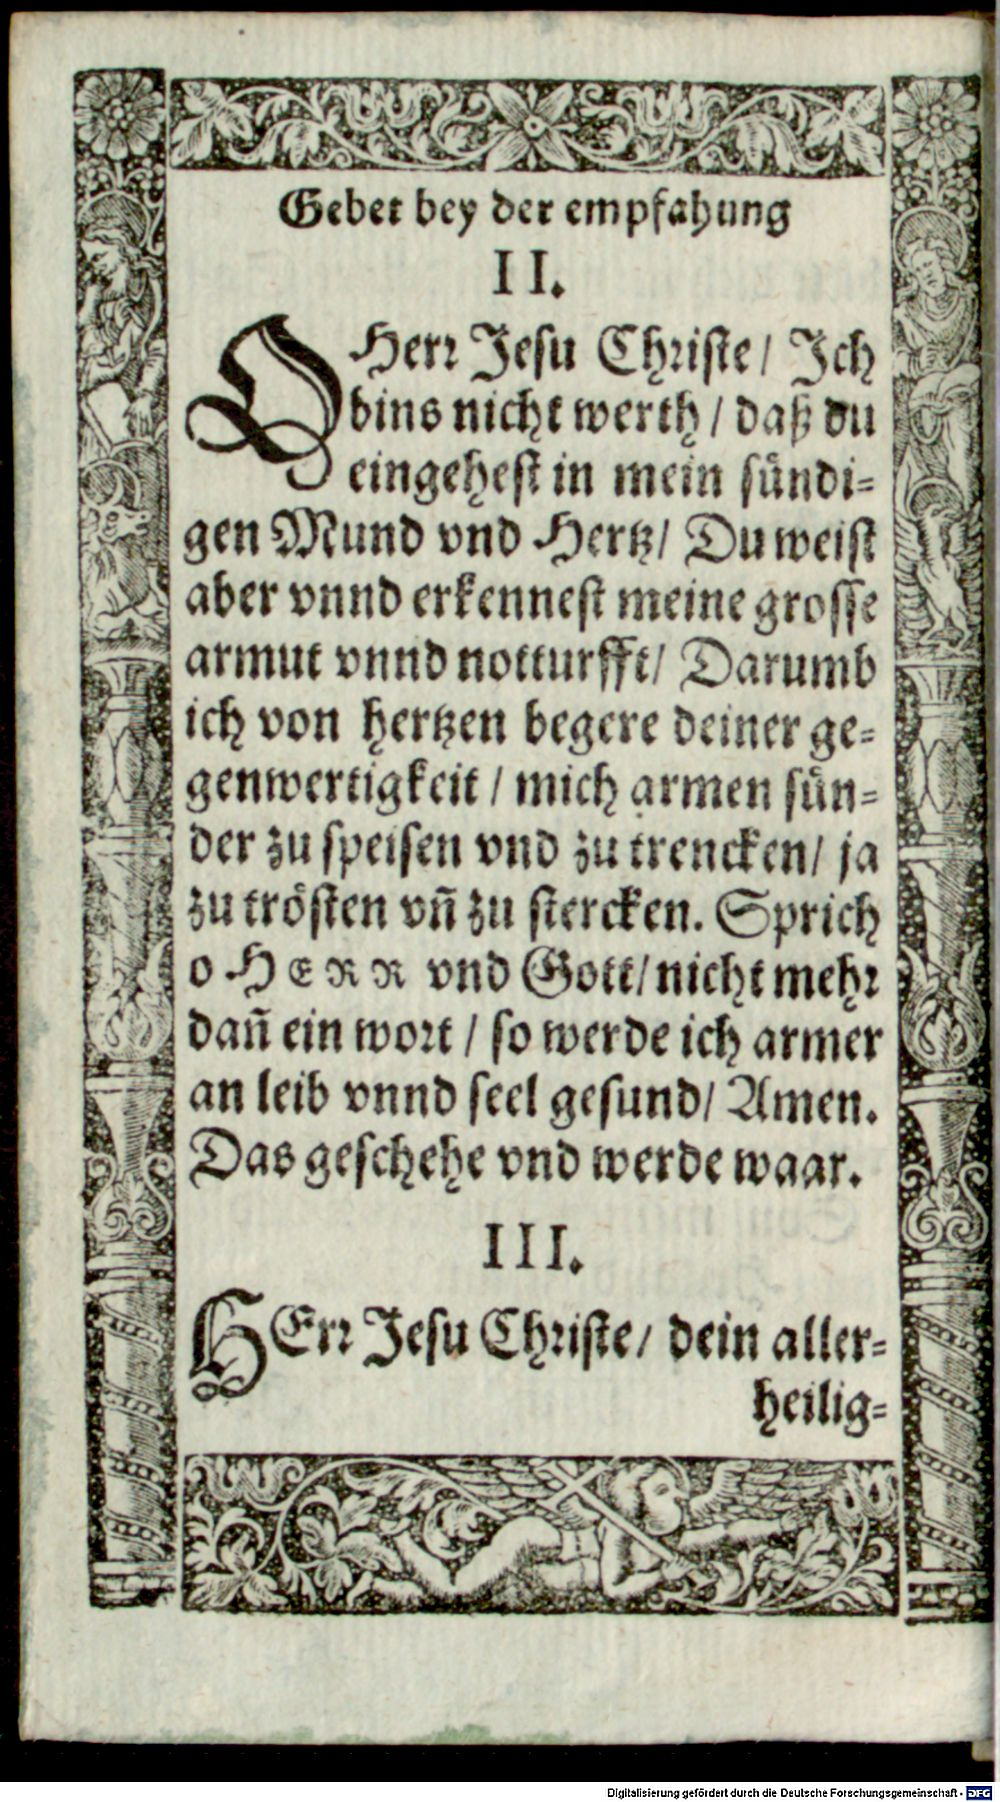 Gebet bey der empfahung
II.
O Herr Jesu Christe/ Ich
bins nicht werth/ daß du
eingehest in mein sündi-
gen Mund vnd Hertz/ Du weist
aber vnnd erkennest meine grosse
armut vnnd notturfft/ Darumb
ich von hertzen begere deiner ge-
genwertigkeit/ mich armen sün-
der zu speisen vnd zu trencken/ ja
zu trösten vñ zu stercken. Sprich
o HERR vnd Gott/ nicht mehr
dañ ein wort/ so werde ich armer
an leib vnnd seel gesund/ Amen.
Das geschehe vnd werde waar.
III.
HErr Jesu Christe/ dein aller-
heilig-
Digitalisierung gefördert durch die Deutsche Forschungsgemeinschaft - DFG